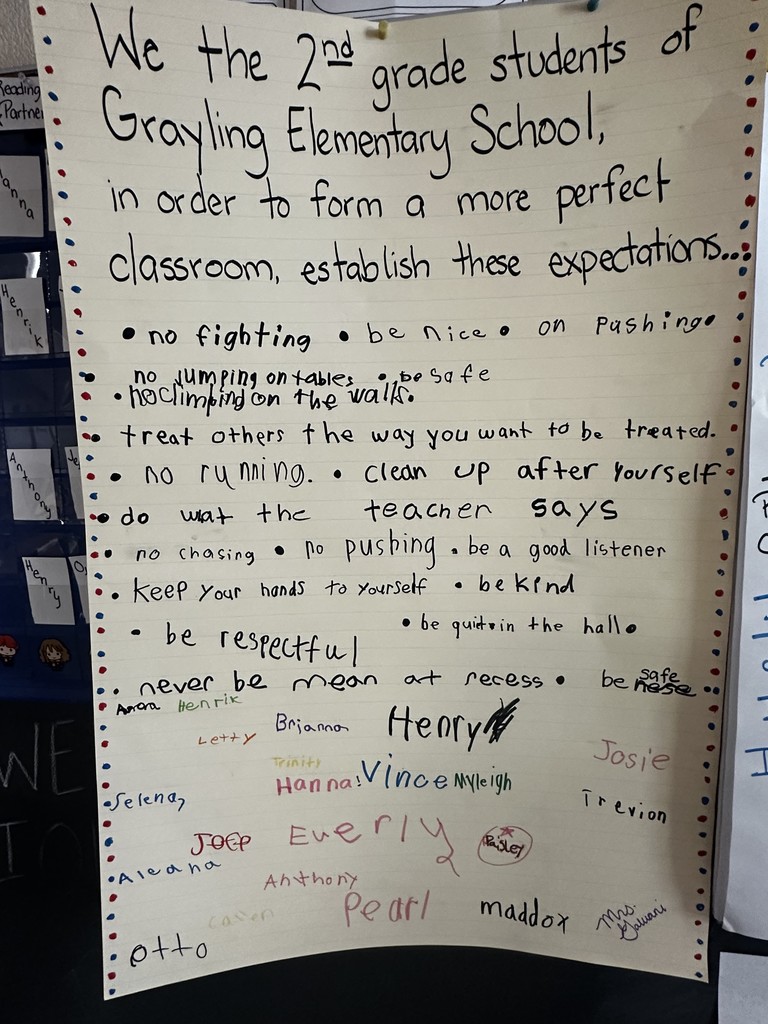 We the 2nd grade students of
Grayling Elementary School,
in order to form a more perfect
classroom, establish these expectations...
• no fighting • be nice • on pushing •
no jumping on tables • be safe
• no climbing on the walls.
• treat others the way you want to be treated.
• no running. • clean up after yourself
• do wat the teacher says
• no chasing • no pushing • be a good listener
• keep your hands to yourself • be kind
• be respectful • be quit in the hall •
• never be mean at recess • be safe
Henrik
Letty Brianna Henry Josie
Trinity
Selena Hanna Vince Myleigh Trevion
Everly Paisley
Aleana Anthony
Pearl maddox Mrs.
otto
Reading
Partne
anna
Henrik
Anthony
Henry
WE